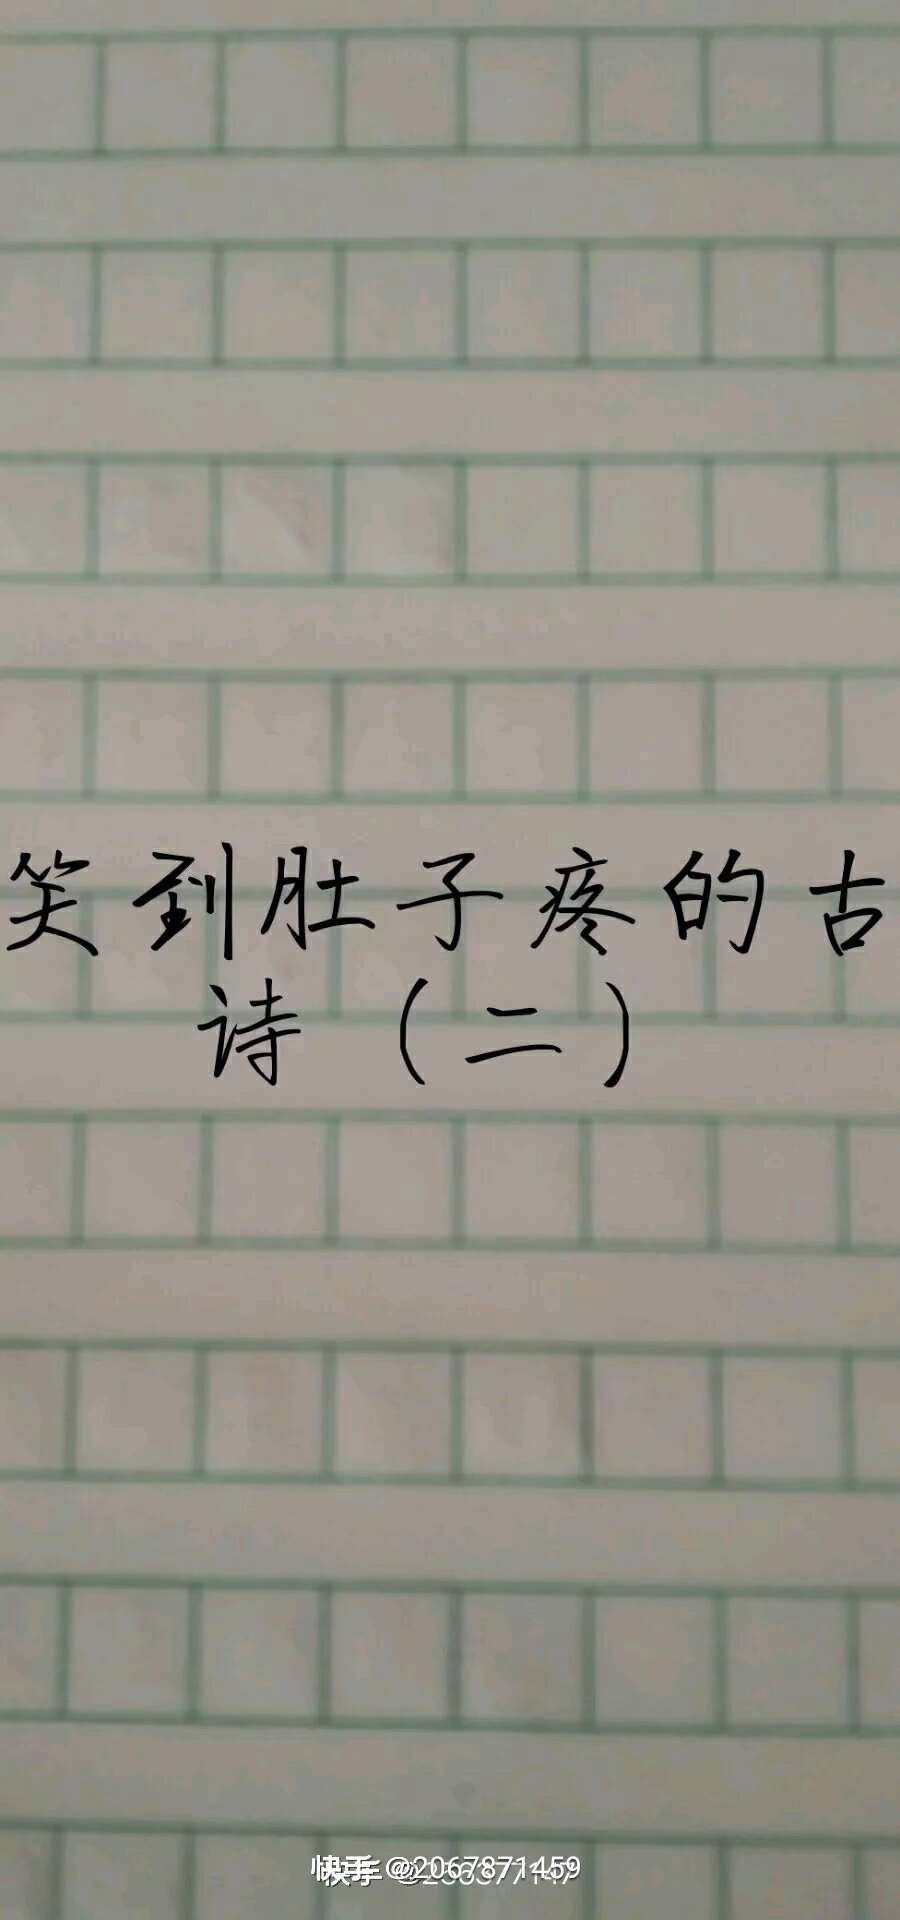 笑到肚子疼的古
诗（二）
快手 @2067871459